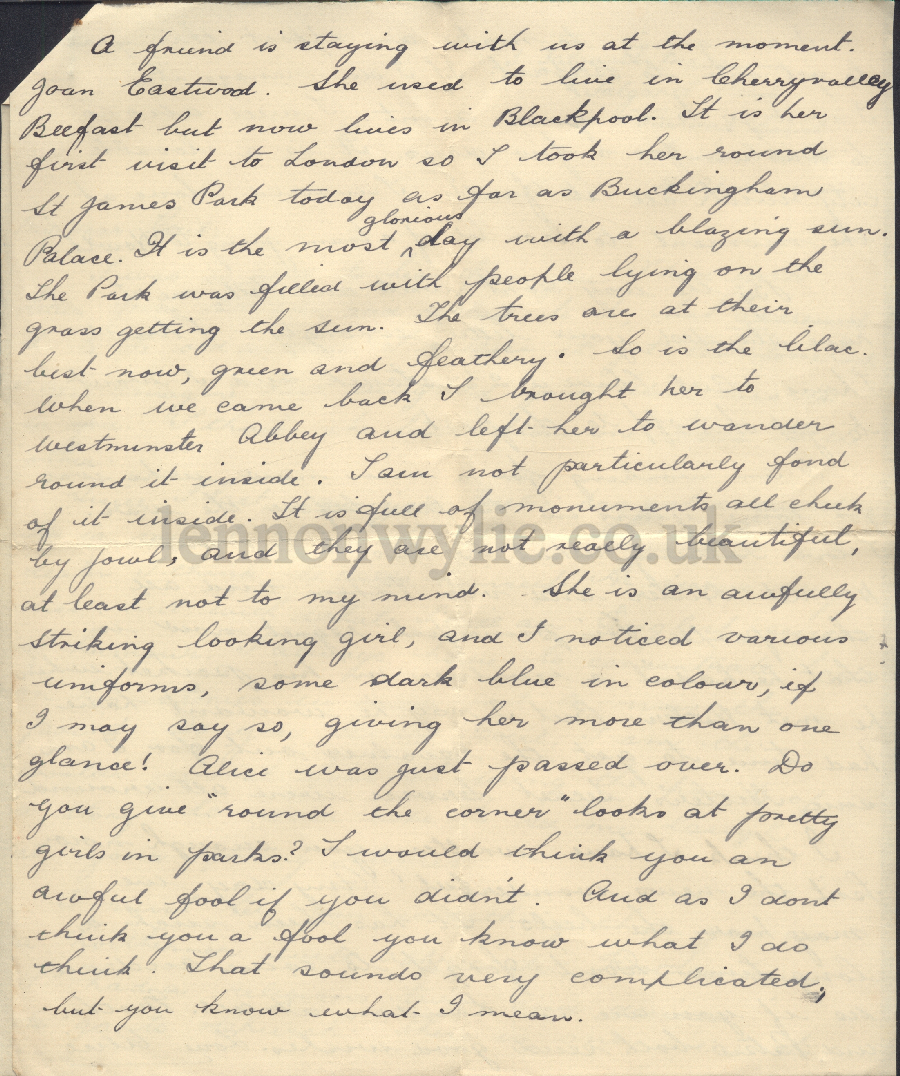 A friend is staying with us at the moment.
Joan Eastwood. She used to live in Cherryvalley
Belfast but now lives in Blackpool. It is her
first visit to London so I took her round
St James Park today as far as Buckingham
Palace. It is the most glorious day with a blazing sun.
The Park was filled with people lying on the
grass getting the sun. The trees are at their
best now, green and feathery. So is the lilac.
When we came back I brought her to
Westminster Abbey and left her to wander
round it inside. I am not particularly fond
of it inside. It is full of monuments all cheek
by jowl, and they are not really beautiful,
lennonwylie.co.uk
at least not to my mind. She is an awfully
striking looking girl, and I noticed various
uniforms, some dark blue in colour, if
I may say so, giving her more than one
glance! Alice was just passed over. Do
you give "round the corner" looks at pretty
girls in parks? I would think you an
awful fool if you didn't. And as I dont
think you a fool you know what I do
think. That sounds very complicated,
but you know what I mean.